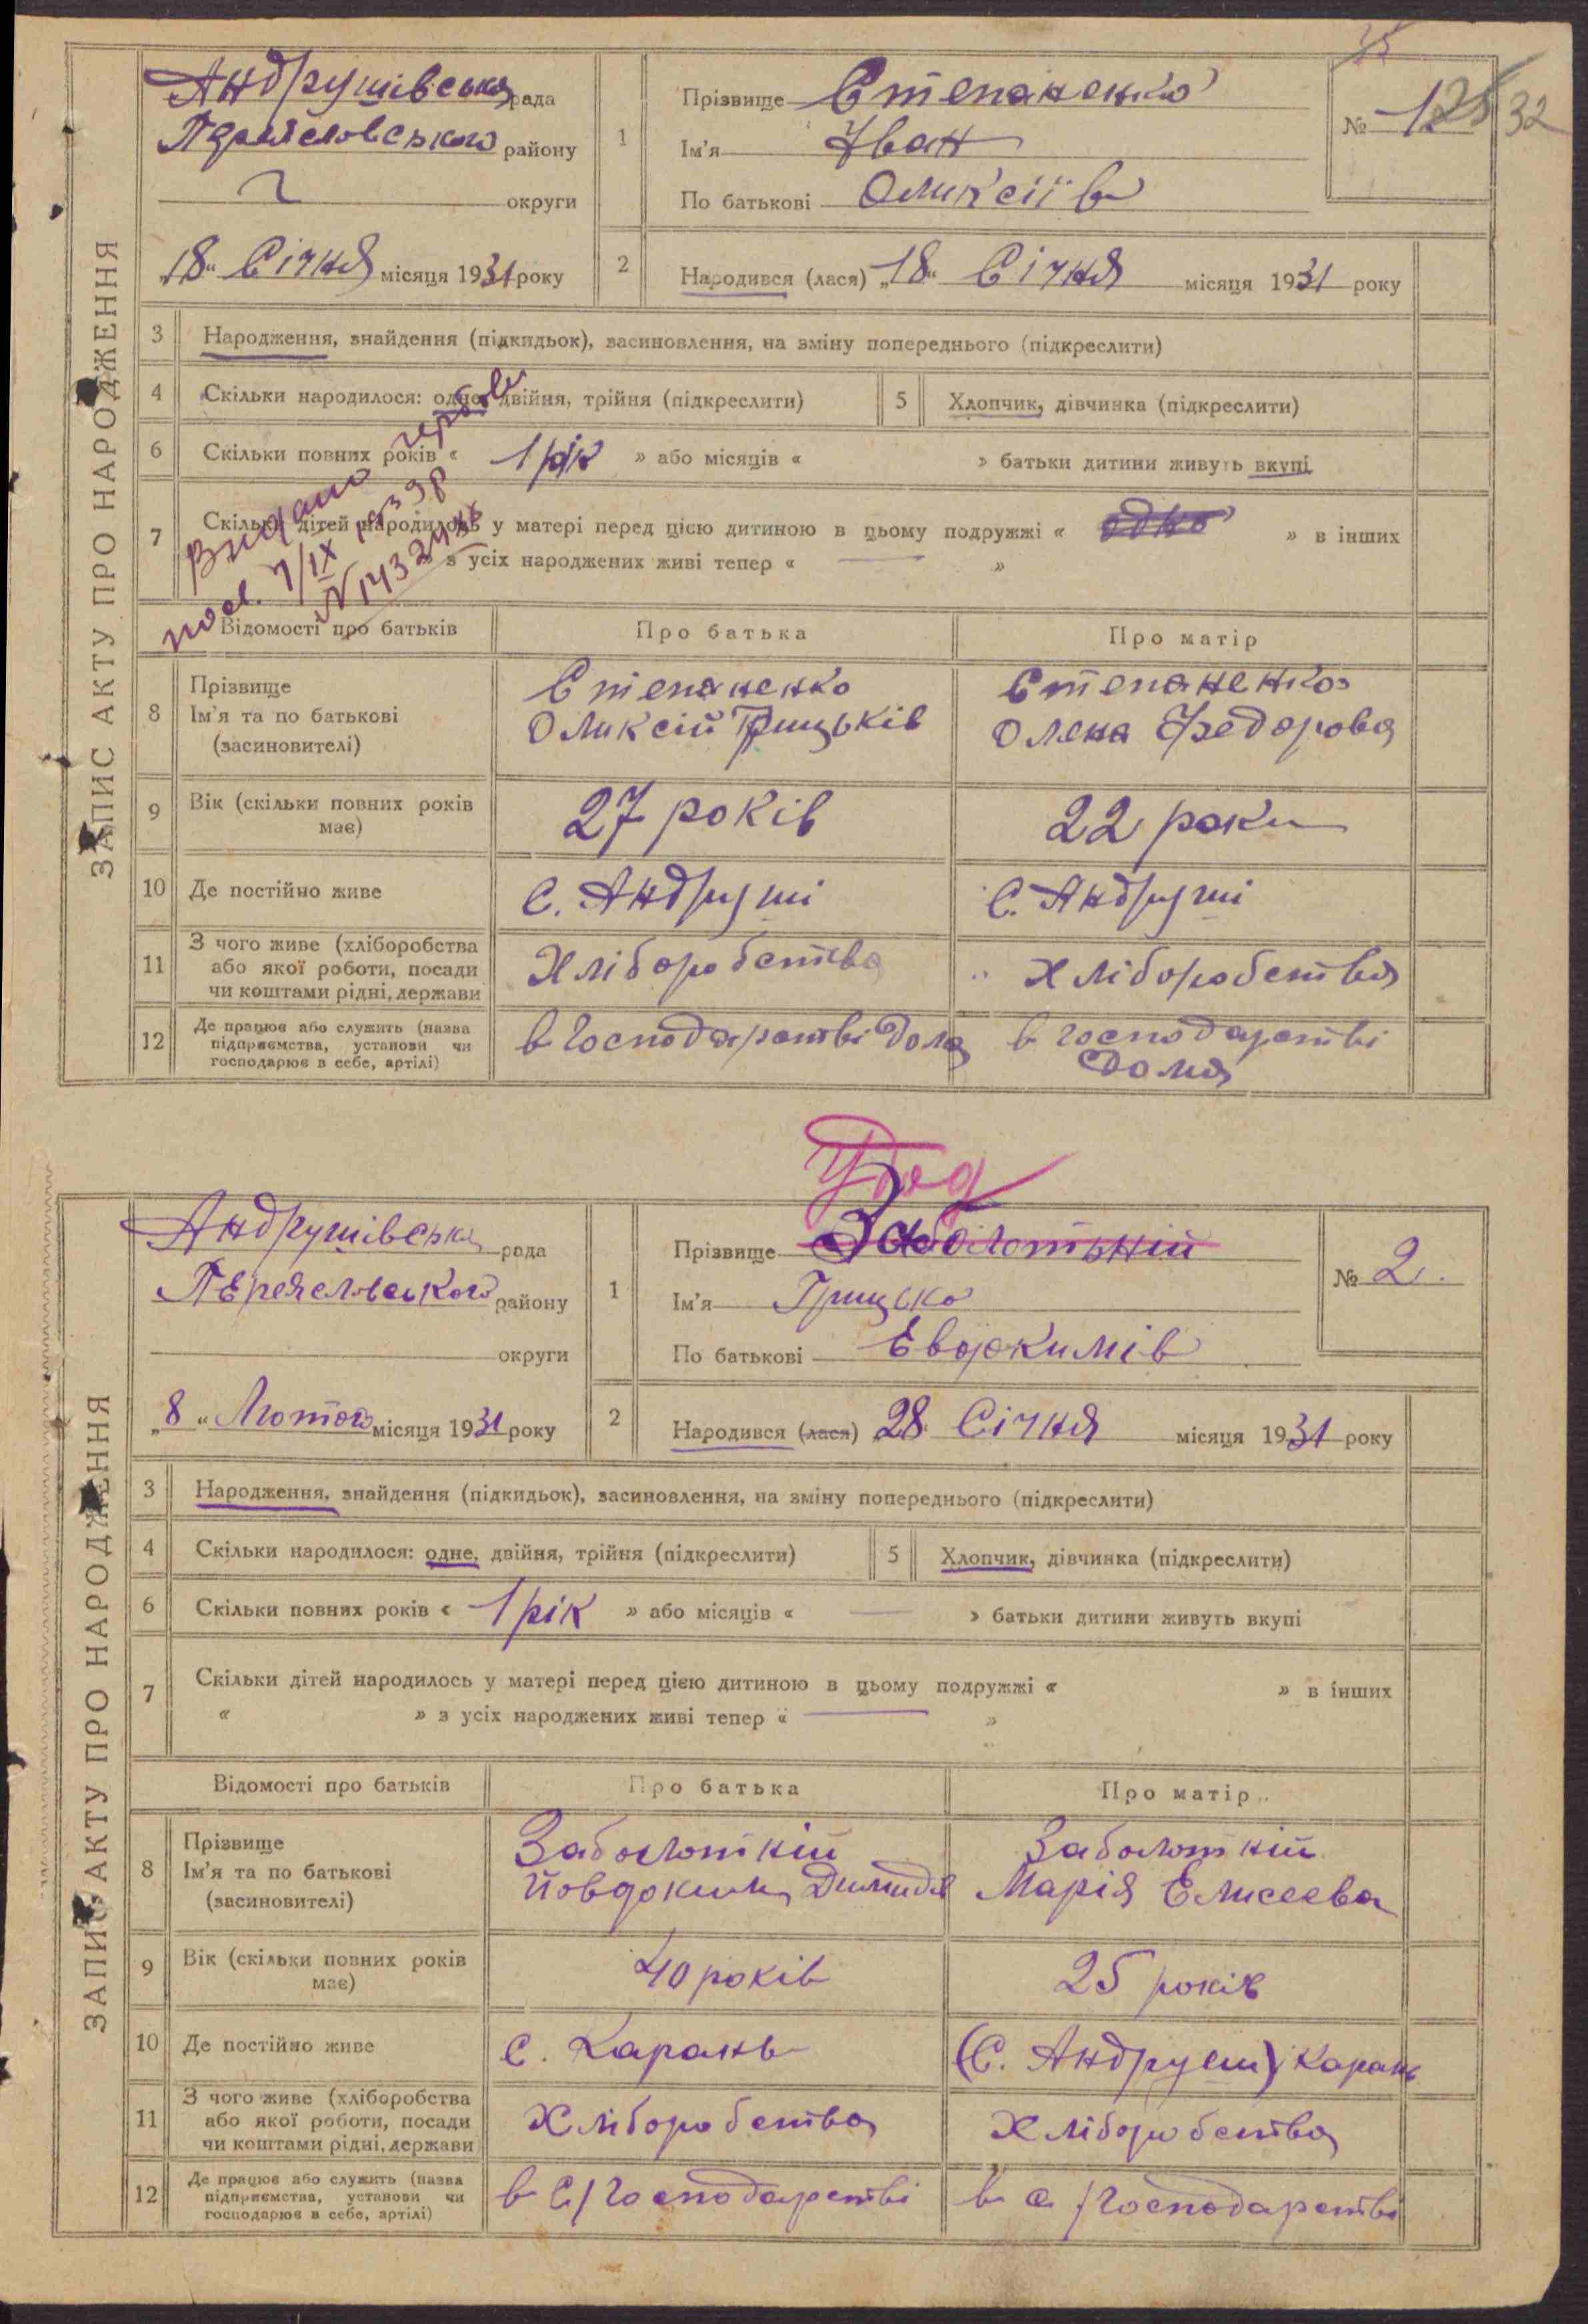 ЗАПИС АКТУ ПРО НАРОДЖЕННЯ
Андрушівська рада
района
округи
„18“ Січня місяця 1931 року
1
Прізвище Степаненко
Ім'я Іван
По батькові Оликсіїв
№ 1
32
2
Народився (лася) „18“ Січня місяця 1931 року
3 Народження, знайдення (підкидьок), засиновлення, на зміну попереднього (підкреслити)
4 Скільки народилося: одне, двійня, трійня (підкреслити)
5 Хлопчик, дівчинка (підкреслити)
6 Скільки повних років « 1 рік » або місяців « » батьки дитини живуть вкупі
7 Скільки дітей народилось у матері перед цією дитиною в цьому подружжі « одно » в інших
» з усіх народжених живі тепер « — »
Видано
посв. 7/IX 1939р
Відомості про батьків Про батька Про матір
8 Прізвище
Ім'я та по батькові
(засиновителі)
Степаненко
Оликсій Грицьків
Степаненко
Олена Федорова
9 Вік (скільки повних років має)
27 років
22 роки
10 Де постійно живе
С. Андруші
С. Андруші
11 З чого живе (хліборобства
або якої роботи, посади
чи коштами рідні, держави
Хліборобства
Хліборобства
12 Де працює або служить (назва
підприємства, установи чи
господарює в себе, артілі)
в господарстві дома
в господарстві
дома
ЗАПИС АКТУ ПРО НАРОДЖЕННЯ
Андрушівська рада
Переяславського району
округи
„8“ Лютого місяця 1931 року
1
Прізвище Заболотьній
Ім'я Грицько
По батькові Евдокимів
№ 2.
2
Народився (лася) 28 Січня місяця 1931 року
3 Народження, знайдення (підкидьок), засиновлення, на зміну попереднього (підкреслити)
4 Скільки народилося: одне, двійня, трійня (підкреслити)
5 Хлопчик, дівчинка (підкреслити)
6 Скільки повних років « 1 рік » або місяців « — » батьки дитини живуть вкупі
7 Скільки дітей народилось у матері перед цією дитиною в цьому подружжі « » в інших
« » з усіх народжених живі тепер « — »
Відомості про батьків Про батька Про матір
8 Прізвище
Ім'я та по батькові
(засиновителі)
Заболотній
Йовдоким
Заболотній
Марія Елисеева
9 Вік (скільки повних років має)
40 років
25 років
10 Де постійно живе
с. Карань
(С. Андруши) Карань
11 З чого живе (хліборобства
або якої роботи, посади
чи коштами рідні, держави
Хліборобства
Хліборобства
12 Де працює або служить (назва
підприємства, установи чи
господарює в себе, артілі)
в С/господарстві
в с/господарстві